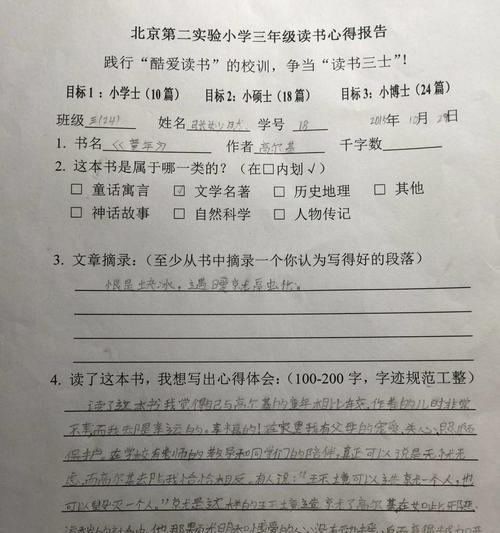 北京第二实验小学三年级读书心得报告
践行“酷爱读书”的校训，争当“读书三士”！
目标1：小学士（10篇） 目标2：小硕士（18篇） 目标3：小博士（24篇）
班级 三(24) 姓名 学号 18 年10月29日
1. 书名《童年》 作者 高尔基 千字数
2. 这本书是属于哪一类的？（在□内划√）
□ 童话寓言 ☑ 文学名著 □ 历史地理 □ 其他
□ 神话故事 □ 自然科学 □ 人物传记
3. 文章摘录：（至少从书中摘录一个你认为写得好的段落）
恨是块冰，遇暖就
4. 读了这本书，我想写出心得体会：（100-200字，字迹规范工整）
读了这本书我觉得自己与高尔基的童年相比在，作者的儿时非常
不幸而我却是幸运的。幸福的！在家里我有父母的宠爱、关心、照顾
保护。在学校有老师的教导和同学们的陪伴，真正可以说是无忧无
虑，而高尔基却跟我恰恰相反。有人说：“环境可以造就一个人，也
可以毁灭一个人。”就是这样的环境造就了高尔基在如此